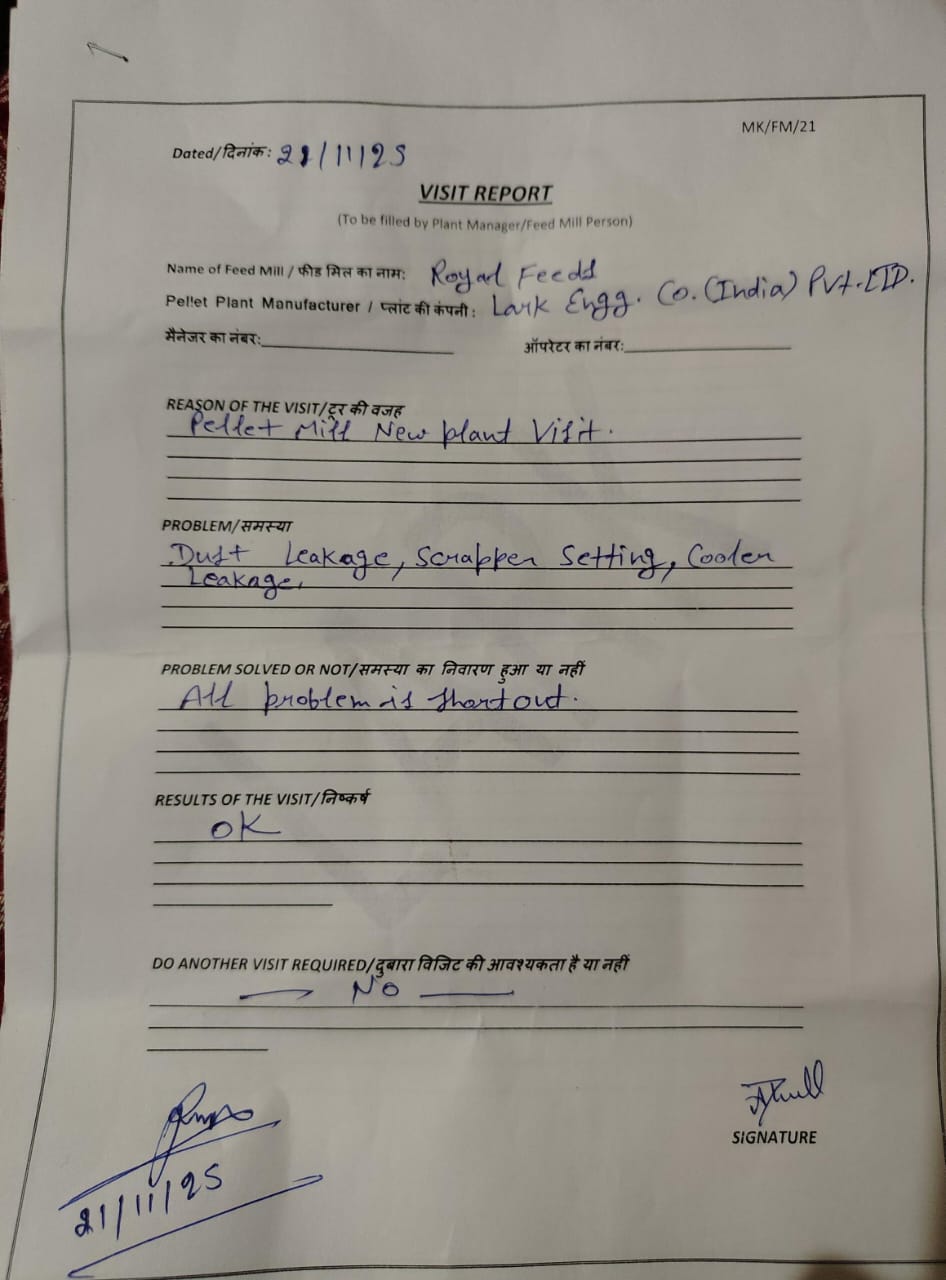 MK/FM/21
Dated/दिनांक: 21/11/25
VISIT REPORT
(To be filled by Plant Manager/Feed Mill Person)
Name of Feed Mill / फीड मिल का नाम: Royal Feeds
Pellet Plant Manufacturer / प्लांट की कंपनी: Lark Engg. Co. (India) Pvt. LTD.
मैनेजर का नंबर: ऑपरेटर का नंबर:
REASON OF THE VISIT/टूर की वजह
Pellet Mill New plant Visit.
PROBLEM/समस्या
Dust Leakage, Scrapper Setting, Cooler
Leakage.
PROBLEM SOLVED OR NOT/समस्या का निवारण हुआ या नहीं
All problem is short out.
RESULTS OF THE VISIT/निष्कर्ष
OK
DO ANOTHER VISIT REQUIRED/दुबारा विजिट की आवश्यकता है या नहीं
NO
SIGNATURE
21/11/25